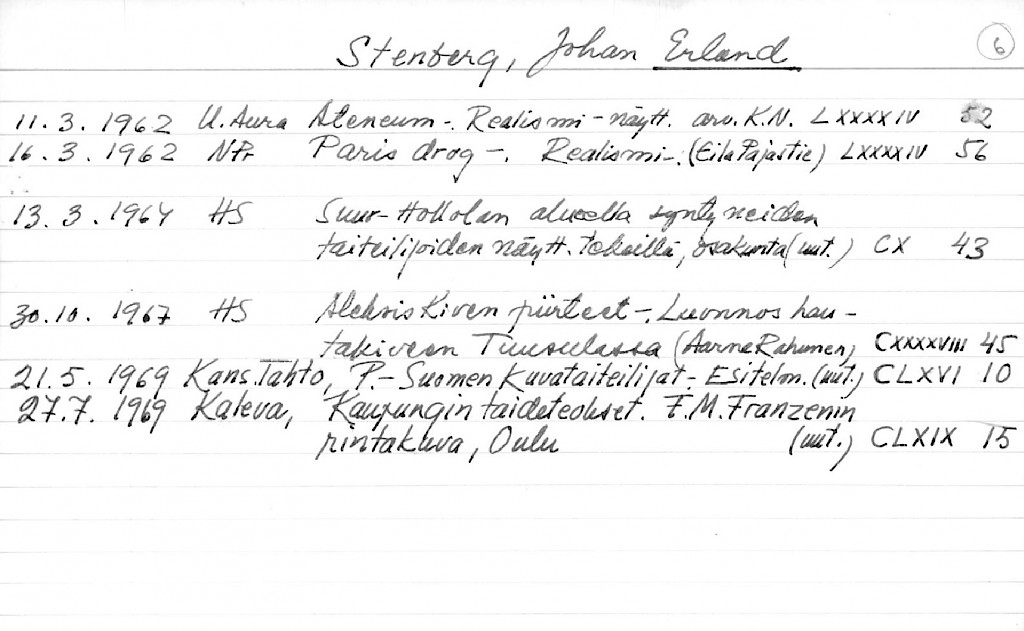 Stenberg, Johan Erland 6
11.3.1962 U. Aura Ateneum-. Realismi-näytt. arv. K.N. LXXXXIV 52
16.3.1962 NPr Paris drog-. Realismi-. (Eila Pajastie) LXXXXIV 56
13.3.1964 HS Suur-Hollolan alueella syntyneiden
taiteilijoiden näytt. tekeillä, osakunta (uut.) CX 43
30.10.1967 HS Aleksis Kiven piirteet-. Luonnos hau-
takiveen Tuusulassa (Aarne Rahunen) CXXXXVIII 45
21.5.1969 Kans. Tahto, P.-Suomen Kuvataiteilijat-. Esitelm. (uut.) CLXVI 10
27.7.1969 Kaleva, Kaupungin taideteokset. F.M. Franzenin
rintakuva, Oulu (uut.) CLXIX 15